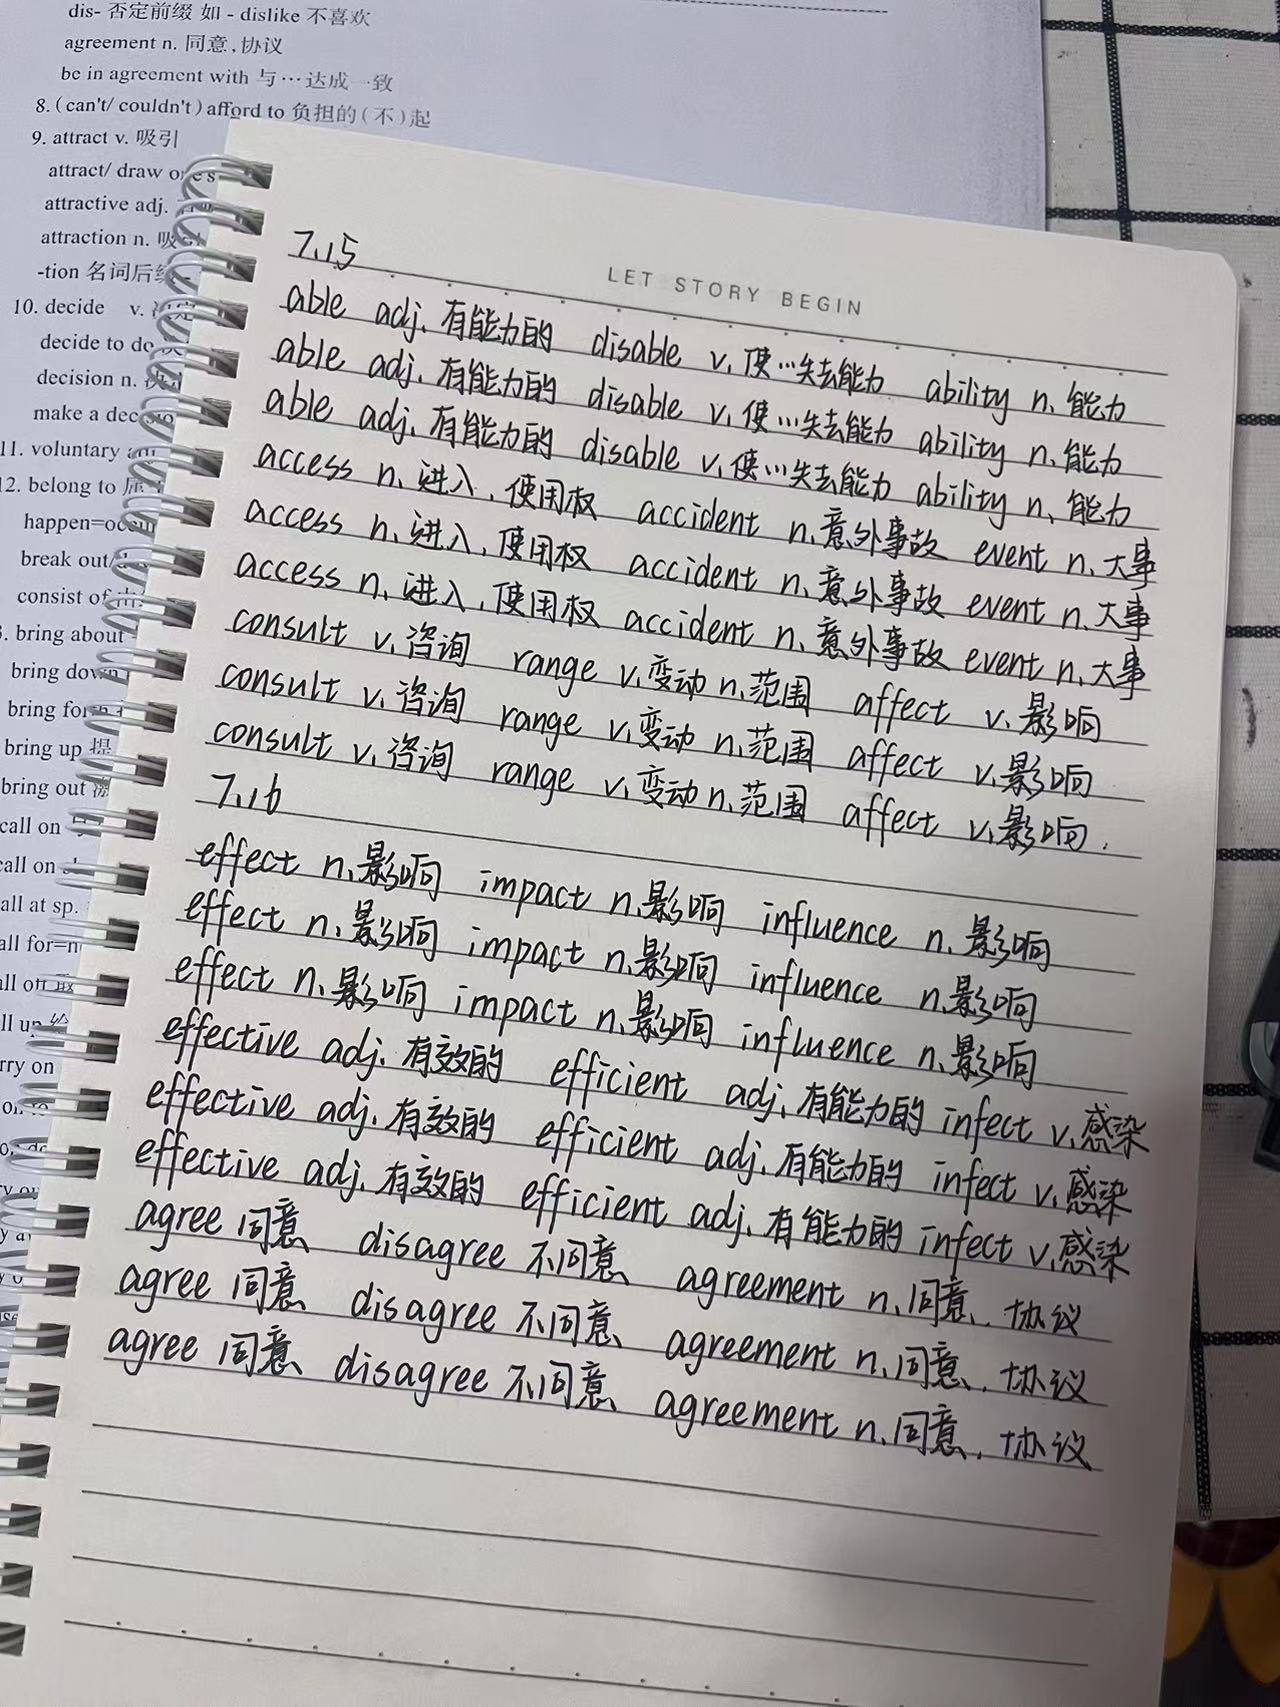 dis- 否定前缀 如 - dislike 不喜欢
agreement n. 同意,协议
be in agreement with 与…达成一致
8. (can't/ couldn't) afford to 负担的(不)起
9. attract v. 吸引
attract/ draw one's
attractive adj.
attraction n. 吸
-tion 名词后缀
10. decide v. 决定
decide to do
decision n. 决
make a decision
11. voluntary
12. belong to 属
happen=occur
break out/
consist of 由
bring about
bring down
bring forth
bring up 提
bring out
call on
call on
call at sp.
all for=n
all off 取
ll up 给
rry on
LET STORY BEGIN
7.15
able adj. 有能力的 disable v. 使…失去能力 ability n. 能力
able adj. 有能力的 disable v. 使…失去能力 ability n. 能力
able adj. 有能力的 disable v. 使…失去能力 ability n. 能力
access n. 进入,使用权 accident n. 意外事故 event n. 大事
access n. 进入,使用权 accident n. 意外事故 event n. 大事
access n. 进入,使用权 accident n. 意外事故 event n. 大事
consult v. 咨询 range v. 变动 n. 范围 affect v. 影响
consult v. 咨询 range v. 变动 n. 范围 affect v. 影响
consult v. 咨询 range v. 变动 n. 范围 affect v. 影响.
7.16
effect n. 影响 impact n. 影响 influence n. 影响
effect n. 影响 impact n. 影响 influence n. 影响
effect n. 影响 impact n. 影响 influence n. 影响
effective adj. 有效的 efficient adj. 有能力的 infect v. 感染
effective adj. 有效的 efficient adj. 有能力的 infect v. 感染
effective adj. 有效的 efficient adj. 有能力的 infect v. 感染
agree 同意 disagree 不同意 agreement n. 同意,协议
agree 同意 disagree 不同意 agreement n. 同意,协议
agree 同意 disagree 不同意 agreement n. 同意,协议